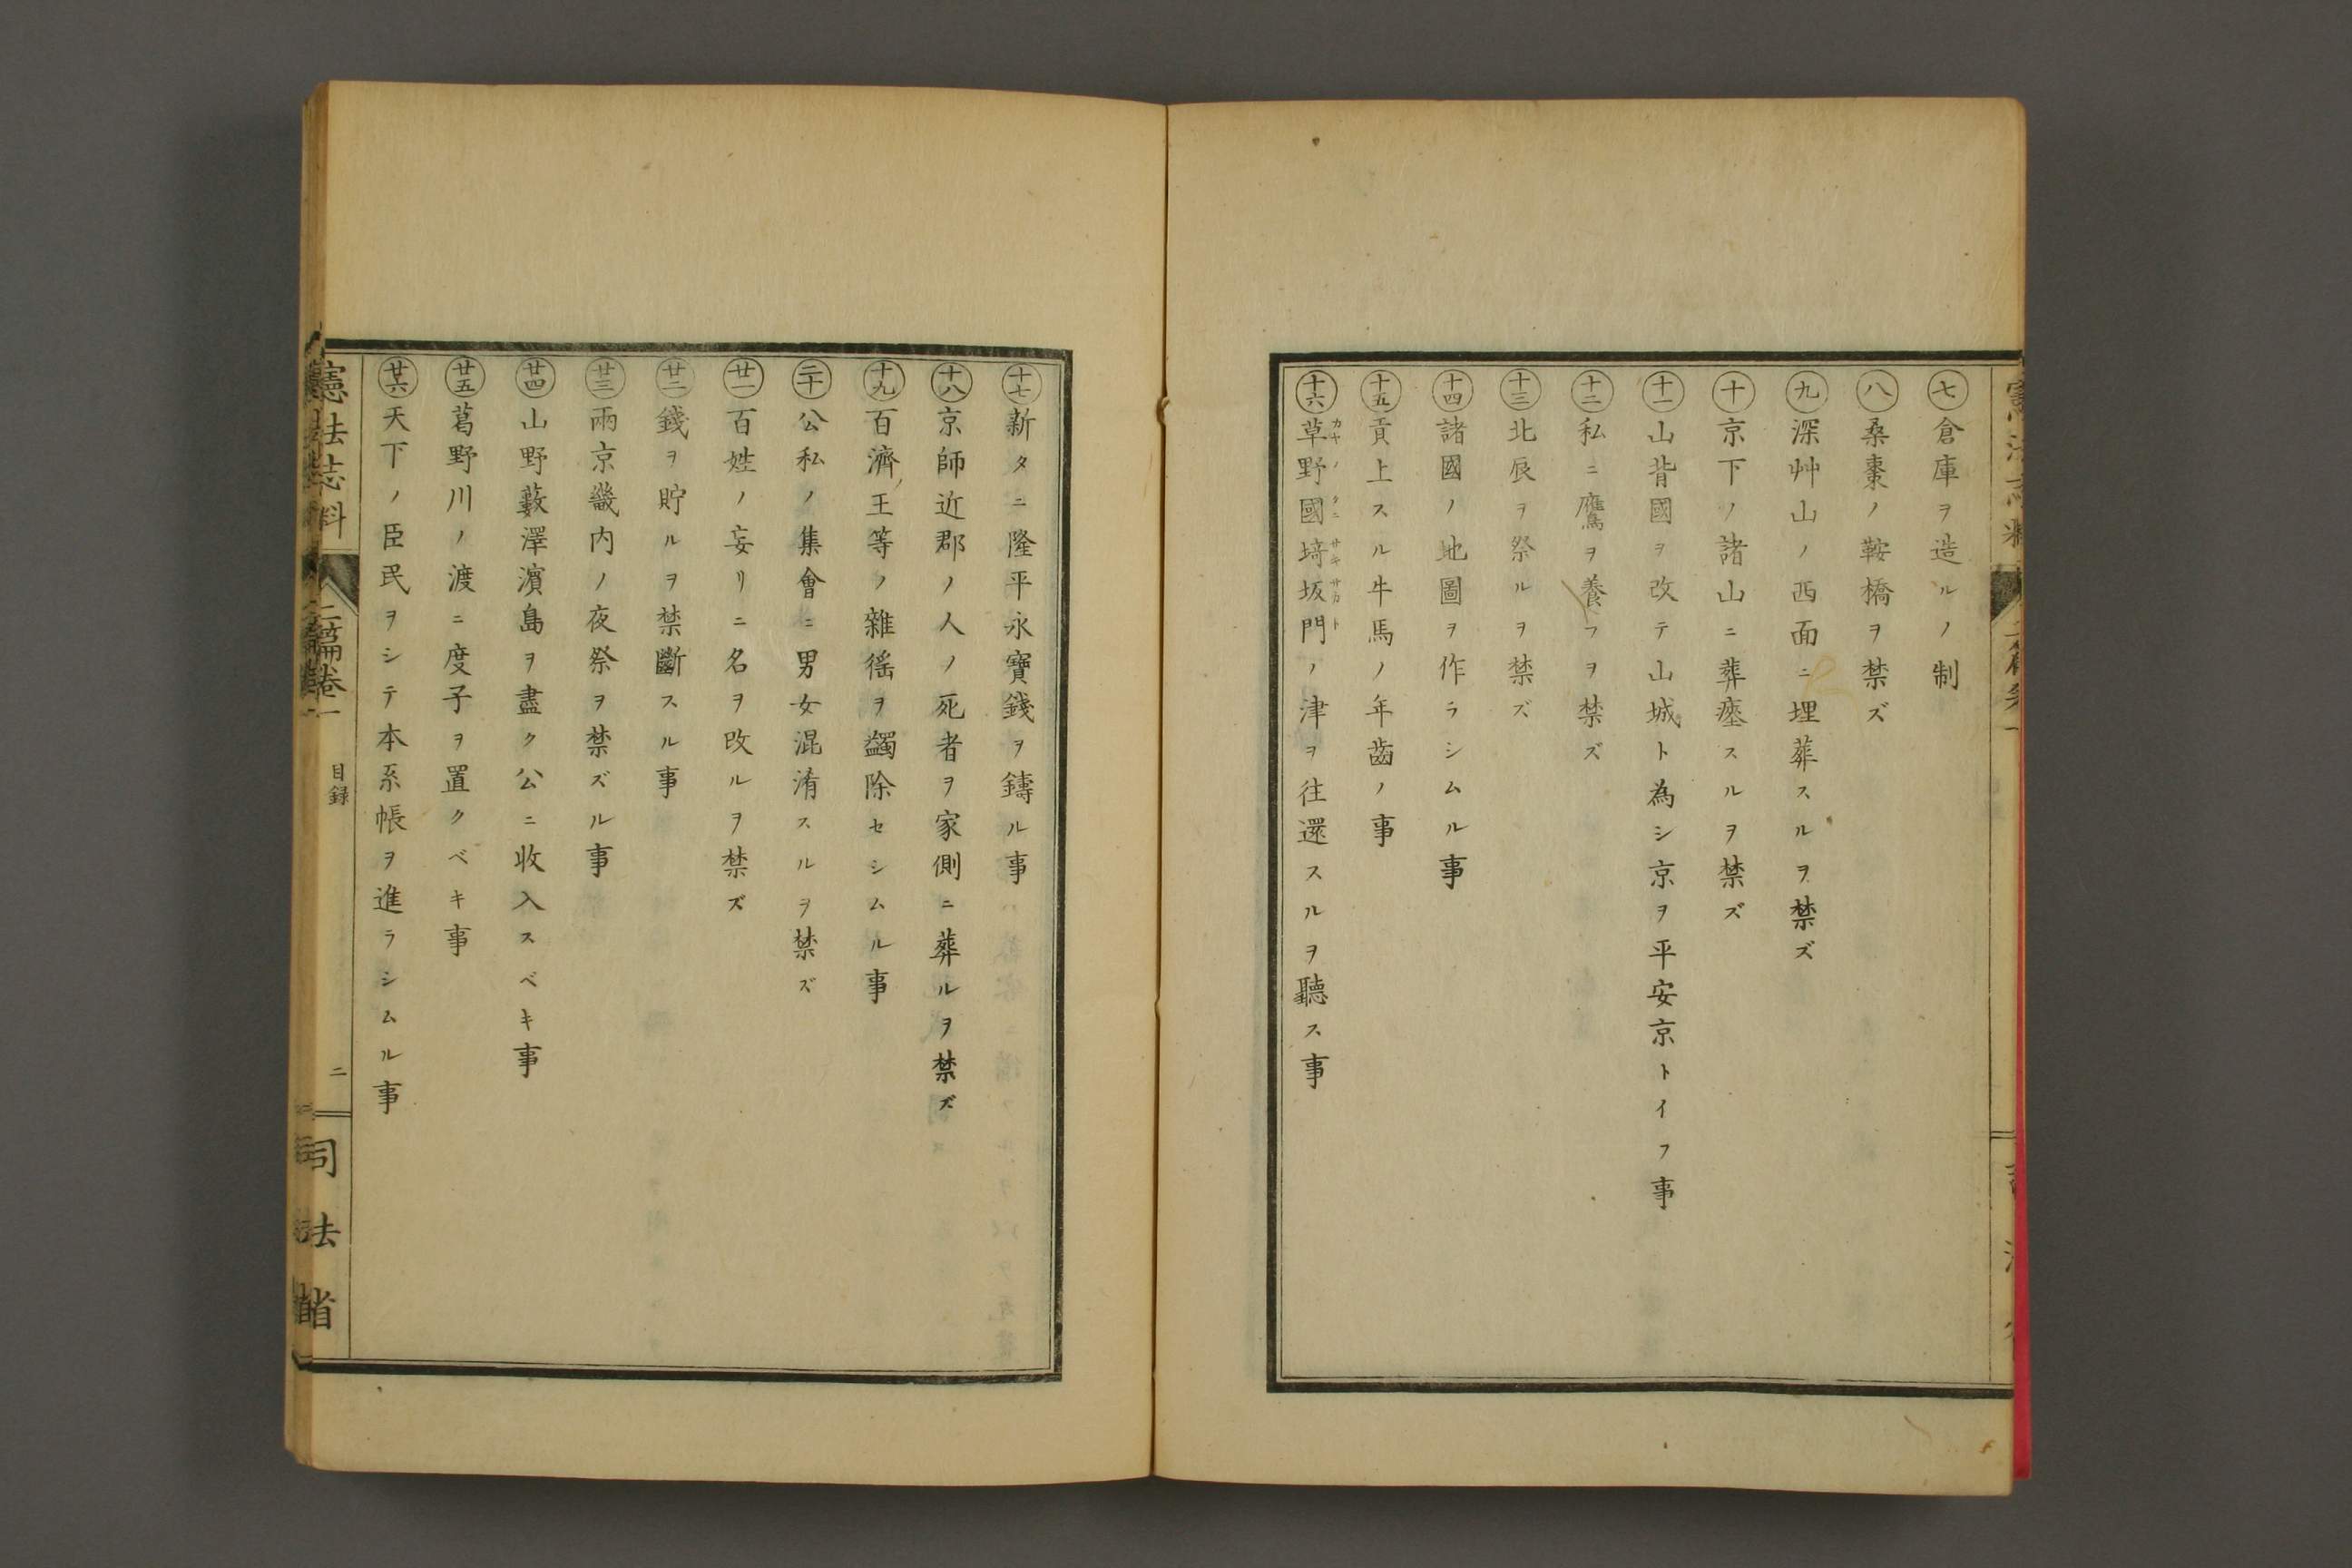 ㊆倉庫ヲ造ルノ制
㊇桑棗ノ鞍橋ヲ禁ズ
㊈深艸山ノ西面ニ埋葬スルヲ禁ズ
㊉京下ノ諸山ニ葬瘞スルヲ禁ズ
十一山背國ヲ改テ山城ト為シ京ヲ平安京トイフ事
十二私ニ鷹ヲ養フヲ禁ズ
十三北辰ヲ祭ルヲ禁ズ
十四諸國ノ地圖ヲ作ラシムル事
十五貢上スル牛馬ノ年齒ノ事
十六草野國埼坂門ノ津ヲ往還スルヲ聽ス事
カヤノクニサキサカト
十七新タニ隆平永寶錢ヲ鑄ル事
十八京師近郡ノ人ノ死者ヲ家側ニ葬ルヲ禁ズ
十九百濟王等ノ雜徭ヲ蠲除セシムル事
二十公私ノ集會ニ男女混淆スルヲ禁ズ
廿一百姓ノ妄リニ名ヲ改ルヲ禁ズ
廿二錢ヲ貯ルヲ禁斷スル事
廿三兩京畿内ノ夜祭ヲ禁ズル事
廿四山野藪澤濱島ヲ盡ク公ニ收入スベキ事
廿五葛野川ノ渡ニ度子ヲ置クベキ事
廿六天下ノ臣民ヲシテ本系帳ヲ進ラシムル事
憲法志料 二篇卷一 目録 二 司法省